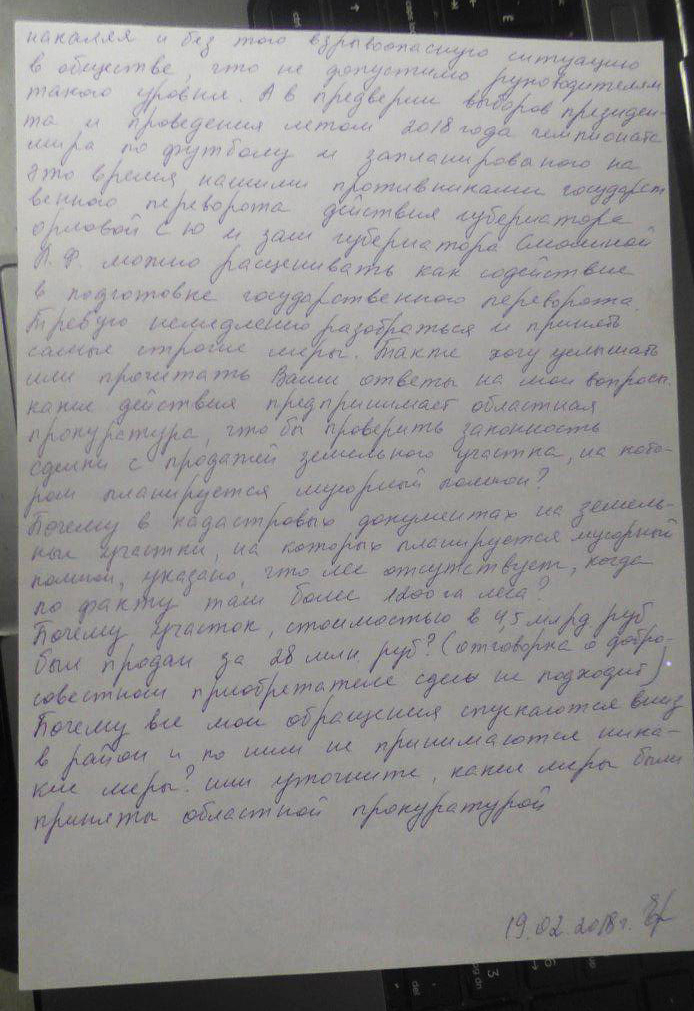 накаляя и без того взрывоопасную ситуацию
в обществе, что не допустимо руководителям
такого уровня. А в предверии выборов президен-
та и проведения летом 2018 года чемпионата
мира по футболу и запланированого на
это время нашими противниками государст
венного переворота действия губернатора
орловой С Ю и зам губернатора Смолиной
Л.Ф. можно расценивать как содействие
в подготовке государственного переворота.
Требую немедленно разобраться и принять
самые строгие меры. Также хочу услышать
или прочитать Ваши ответы на мои вопросы.
какие действия предпринимает областная
прокуратура, что бы проверить законность
сделки с продажей земельного участка, на кото-
ром планируется мусорный полигон?
Почему в кадастровых документах на земель-
ные участки, на которых планируется мусорный
полигон, указано, что лес отсутствует, когда
по факту там более 1200 га леса?
Почему участок, стоимостью в 4,5 млрд руб
был продан за 28 млн руб? (отговорка о добро-
совестном приобретателе сделки не подходит)
Почему все мои обращения спускаются вниз
в район и по ним не принимаются ника-
кие меры? или уточните, какие меры были
приняты областной прокуратурой
19.02.2018г.